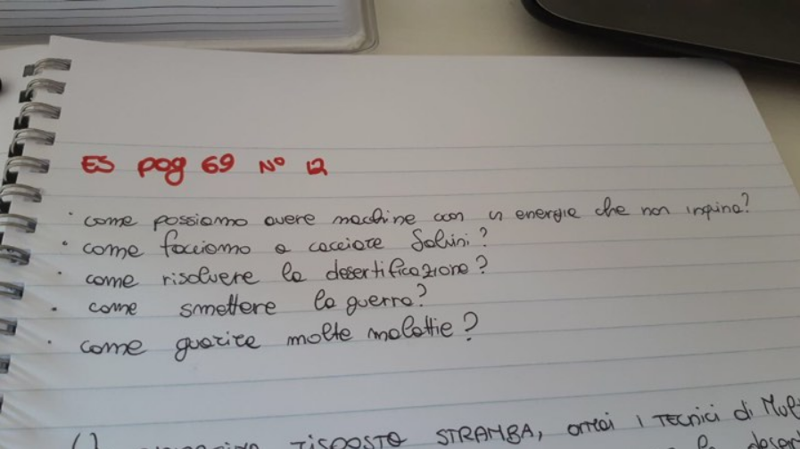 ES pag 69 N° 12
· come possiamo avere macchine con un energia che non inquina?
· come facciamo a cacciare Salvini?
· come risolvere la desertificazione?
· come smettere la guerra?
· come guarire molte malattie?
RISPOSTA STRAMBA, ormai i TECNici di